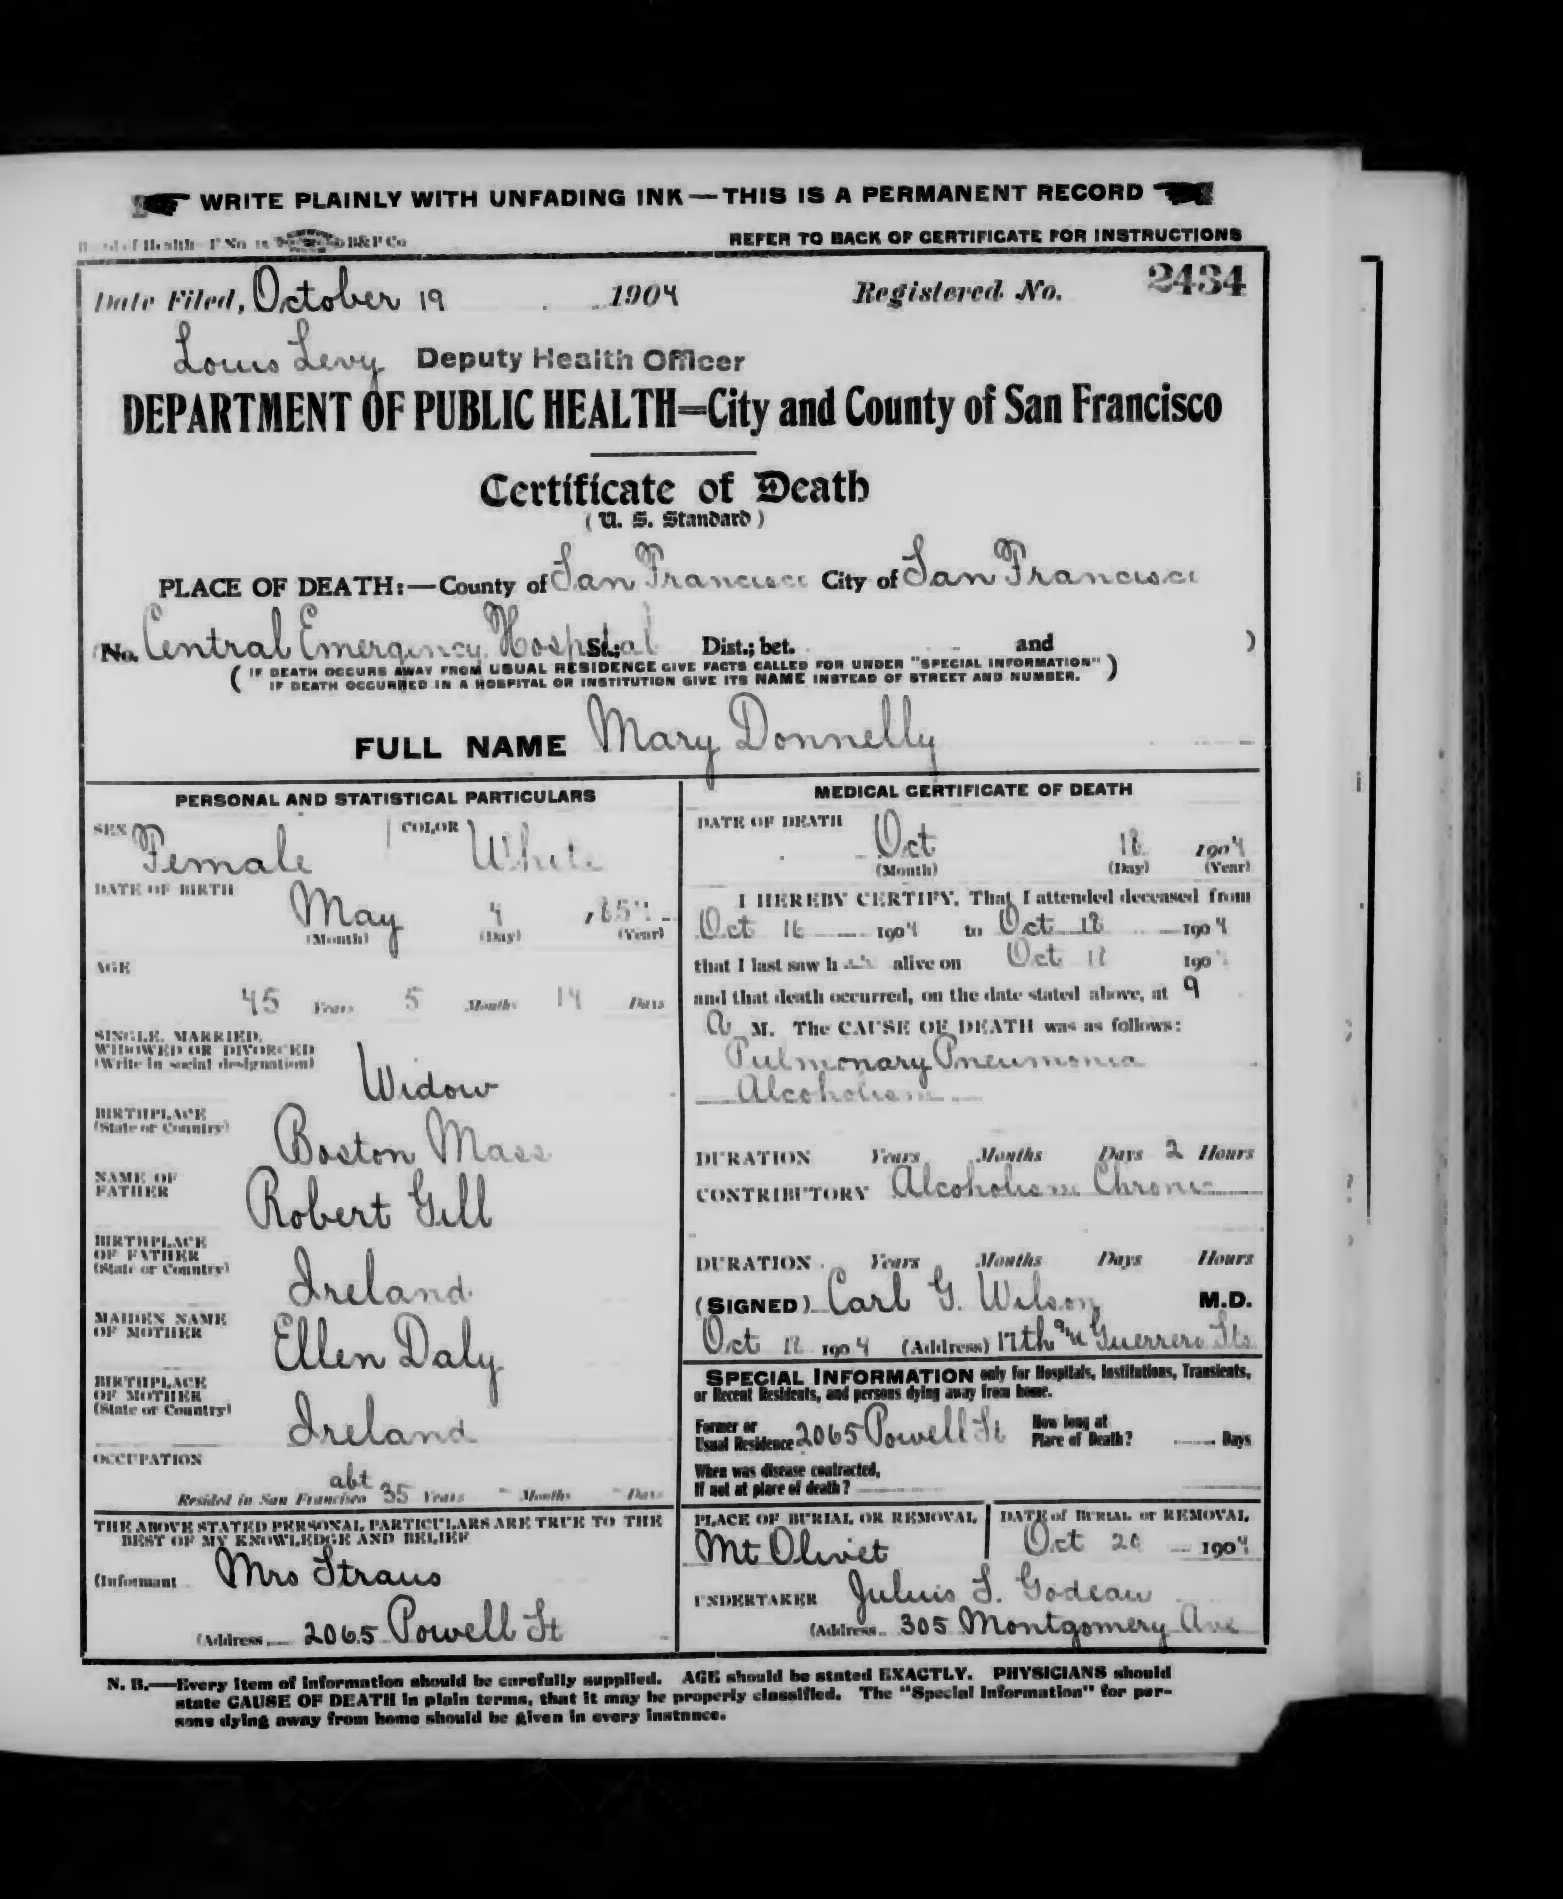 WRITE PLAINLY WITH UNFADING INK — THIS IS A PERMANENT RECORD
Board of Health—F No. B&P Co
REFER TO BACK OF CERTIFICATE FOR INSTRUCTIONS
Date Filed, October 19 1904 Registered No. 2434
Louis Levy Deputy Health Officer
DEPARTMENT OF PUBLIC HEALTH=City and County of San Francisco
Certificate of Death
(U. S. Standard)
PLACE OF DEATH:—County of San Francisco City of San Francisco
(No. Central Emergency Hospital St.; Dist.; bet. and )
( IF DEATH OCCURS AWAY FROM USUAL RESIDENCE GIVE FACTS CALLED FOR UNDER "SPECIAL INFORMATION" )
( IF DEATH OCCURRED IN A HOSPITAL OR INSTITUTION GIVE ITS NAME INSTEAD OF STREET AND NUMBER. )
FULL NAME Mary Donnelly
PERSONAL AND STATISTICAL PARTICULARS
SEX Female COLOR White
DATE OF BIRTH
May 4
(Month) (Day) (Year)
AGE
45 Years 5 Months 14 Days
SINGLE, MARRIED,
WIDOWED OR DIVORCED
(Write in social designation)
Widow
BIRTHPLACE
(State or Country)
Boston Mass
NAME OF
FATHER
Robert Gill
BIRTHPLACE
OF FATHER
(State or Country)
Ireland
MAIDEN NAME
OF MOTHER
Ellen Daly
BIRTHPLACE
OF MOTHER
(State or Country)
Ireland
OCCUPATION
Resided in San Francisco abt 35 Years - Months - Days
THE ABOVE STATED PERSONAL PARTICULARS ARE TRUE TO THE
BEST OF MY KNOWLEDGE AND BELIEF
(Informant Mrs Straus
(Address 2065 Powell St
MEDICAL CERTIFICATE OF DEATH
DATE OF DEATH
Oct 18 1904
(Month) (Day) (Year)
I HEREBY CERTIFY, That I attended deceased from
Oct 1904 to Oct 18 1904
that I last saw h alive on Oct 18 190
and that death occurred, on the date stated above, at 9
A M. The CAUSE OF DEATH was as follows:
Pulmonary Pneumonia
Alcoholism
DURATION Years Months Days 2 Hours
CONTRIBUTORY Alcoholism Chronic
DURATION Years Months Days Hours
(SIGNED) Carl G. Wilson M.D.
Oct 18 1904 (Address) 17th and Guerrero Sts
SPECIAL INFORMATION only for Hospitals, Institutions, Transients,
or Recent Residents, and persons dying away from home.
Former or
Usual Residence 2065 Powell St
How long at
Place of Death? Days
When was disease contracted,
If not at place of death?
PLACE OF BURIAL OR REMOVAL
Mt Olivet
DATE of BURIAL or REMOVAL
Oct 20 1904
UNDERTAKER Julius S. Godeau
(Address 305 Montgomery Ave
N. B.—Every item of information should be carefully supplied. AGE should be stated EXACTLY. PHYSICIANS should
state CAUSE OF DEATH in plain terms, that it may be properly classified. The "Special Information" for per-
sons dying away from home should be given in every instance.